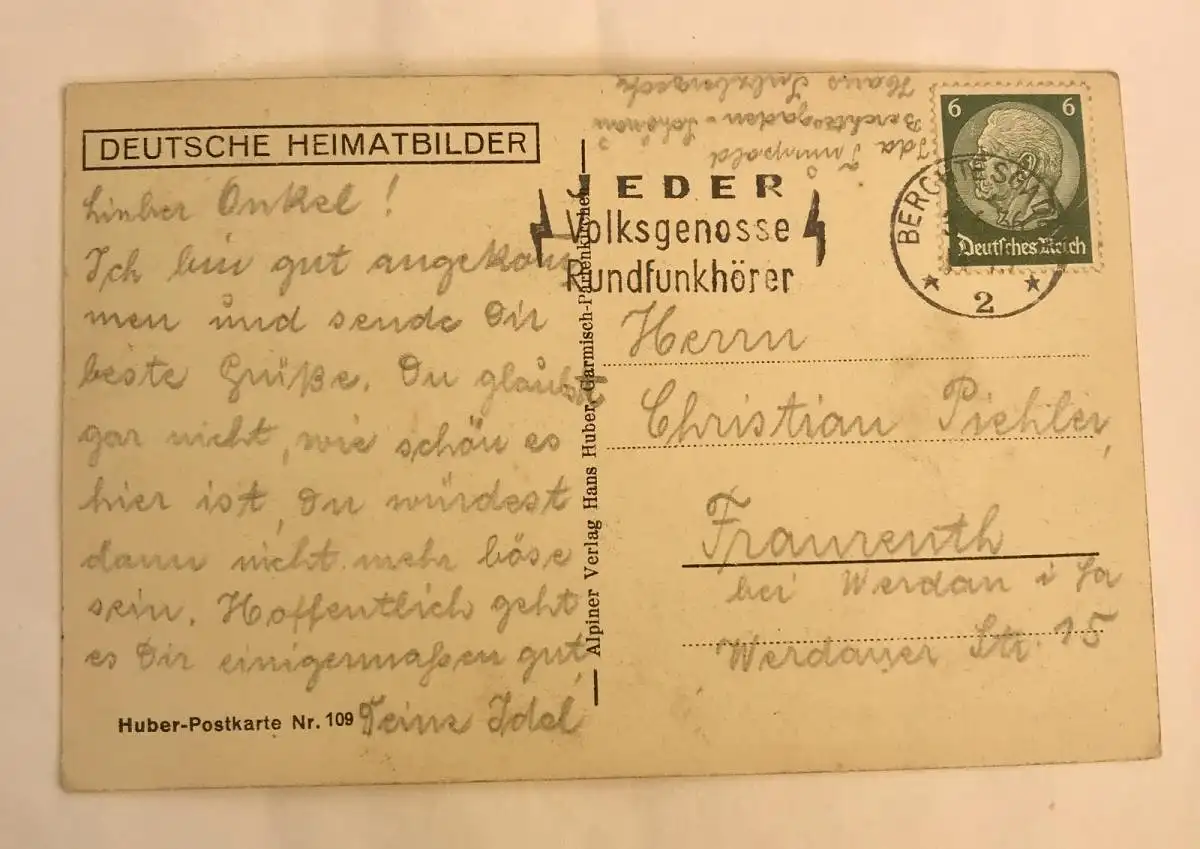 DEUTSCHE HEIMATBILDER
Lieber Onkel!
Ich bin gut angekom
men und sende Dir
beste Grüße. Du glaubst
gar nicht, wie schön es
hier ist, Du würdest
dann nicht mehr böse
sein. Hoffentlich geht
es Dir einigermaßen gut
Deine Idel
Huber-Postkarte Nr. 109
Alpiner Verlag Hans Huber, Garmisch-Partenkirchen
Ida
Berchtesgaden - Schönau
Haus
JEDER
Volksgenosse
Rundfunkhörer
BERCHTESGADEN
2
6 6
Deutsches Reich
Herrn
Christian Pichler,
Fraureuth
bei Werdau i Sa
Werdauer Str. 15